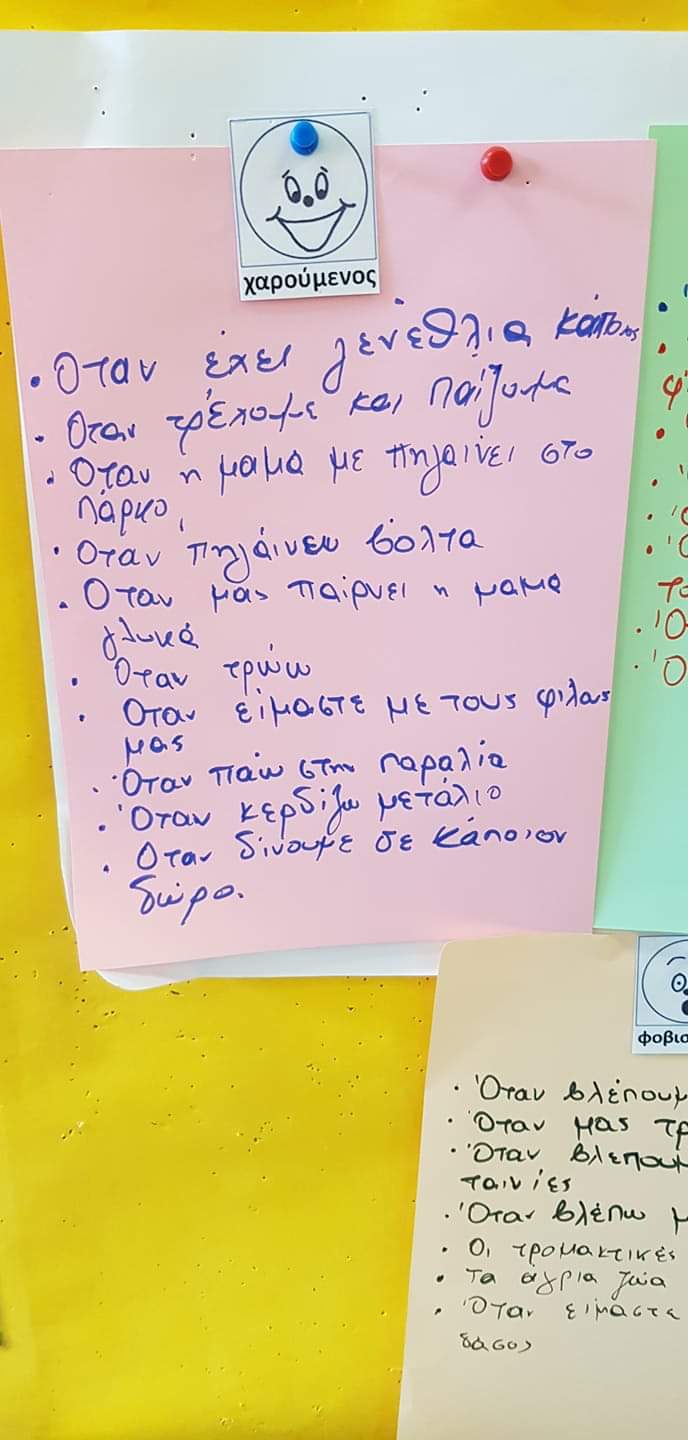 χαρούμενος
• Όταν έχει γενέθλια κάποιος
• Όταν τρέχουμε και παίζουμε
• Όταν η μαμά με πηγαίνει στο
πάρκο
• Όταν πηγαίνω βόλτα
• Όταν μας παίρνει η μαμά
γλυκά
• Όταν τρώω
• Όταν είμαστε με τους φίλους
μας
• Όταν πάω στην παραλία
• Όταν κερδίζω μετάλιο
• Όταν δίνουμε σε κάποιον
δώρο.
φοβισ
• Όταν βλέπουμ
• Όταν μας τρ
• Όταν βλέπουμ
ταινίες
• Όταν βλέπω μ
• Οι τρομακτικές
• Τα άγρια ζώα
• Όταν είμαστε
δάσος